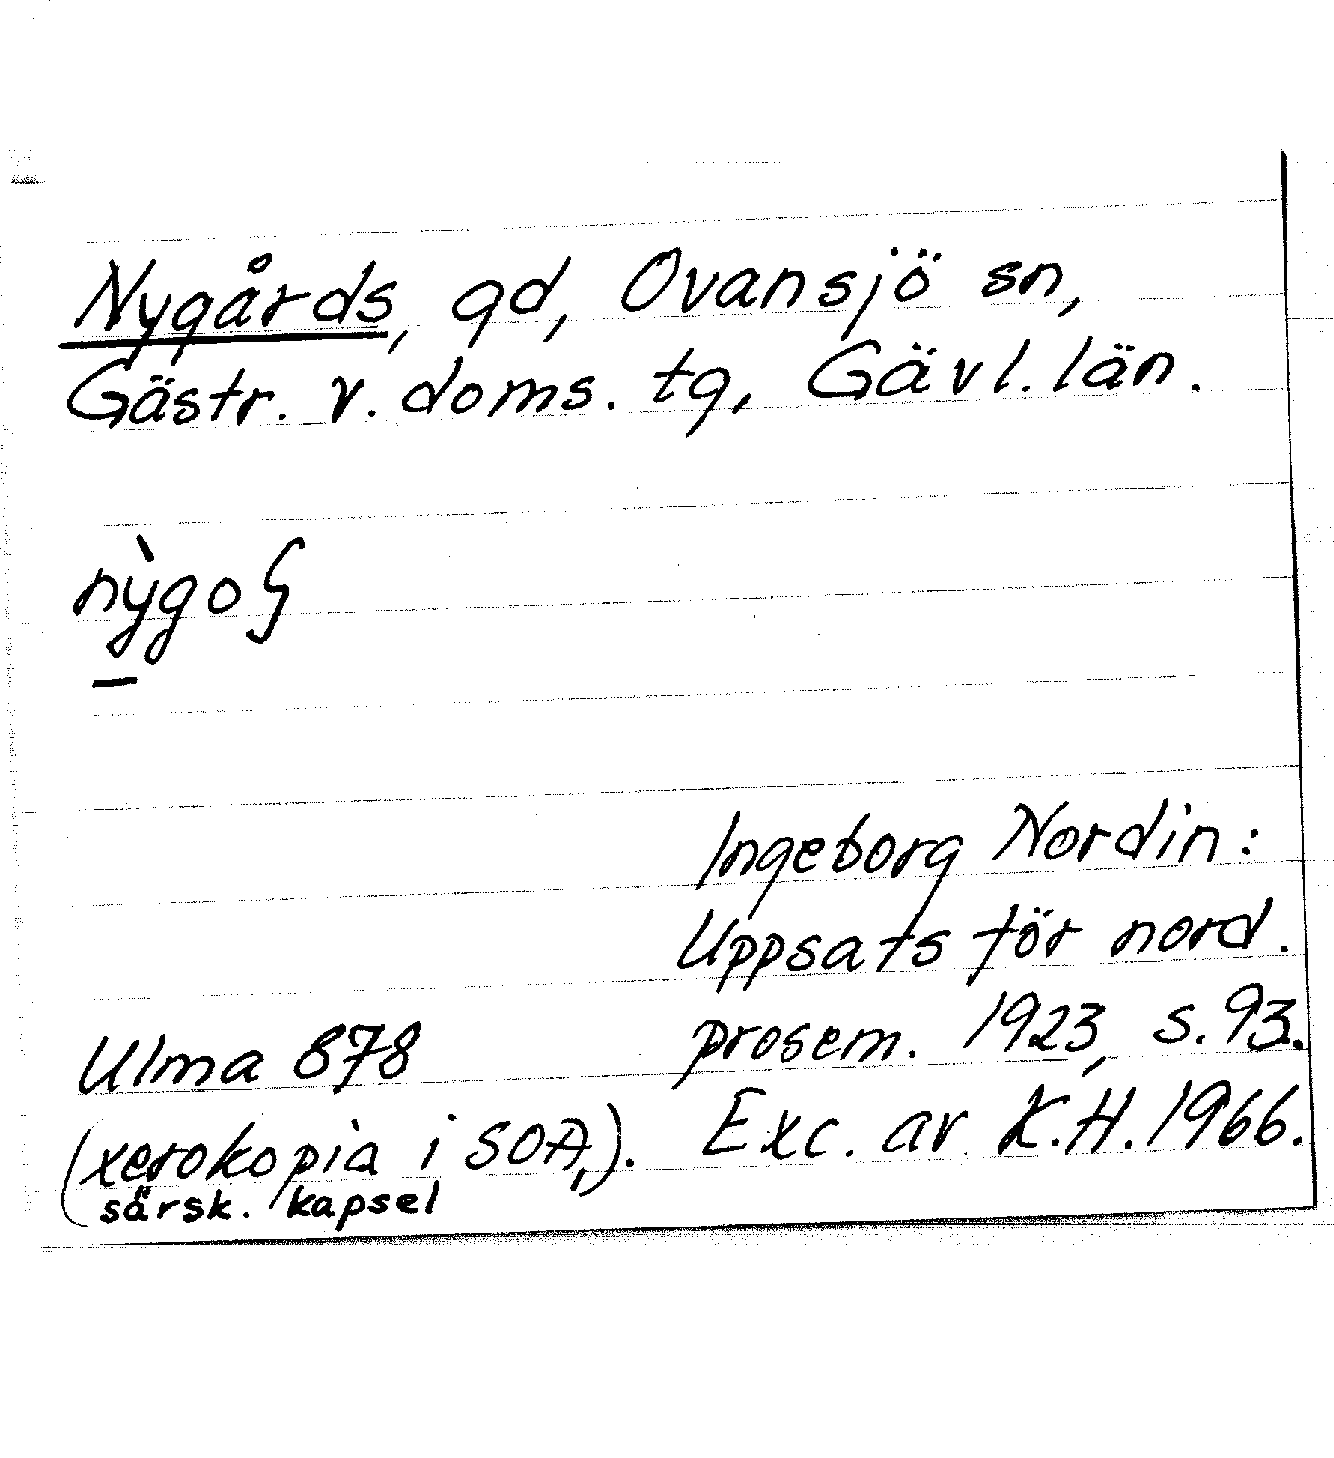 Nygårds, gd, Ovansjö sn,
Gästr. v. doms. tg, Gävl. län.
Ingeborg Nordin:
Uppsats för nord.
prosem. 1923, s. 93.
Ulma 878
(xerokopia i SOA,).
särsk. kapsel
Exc. av K.H. 1966.